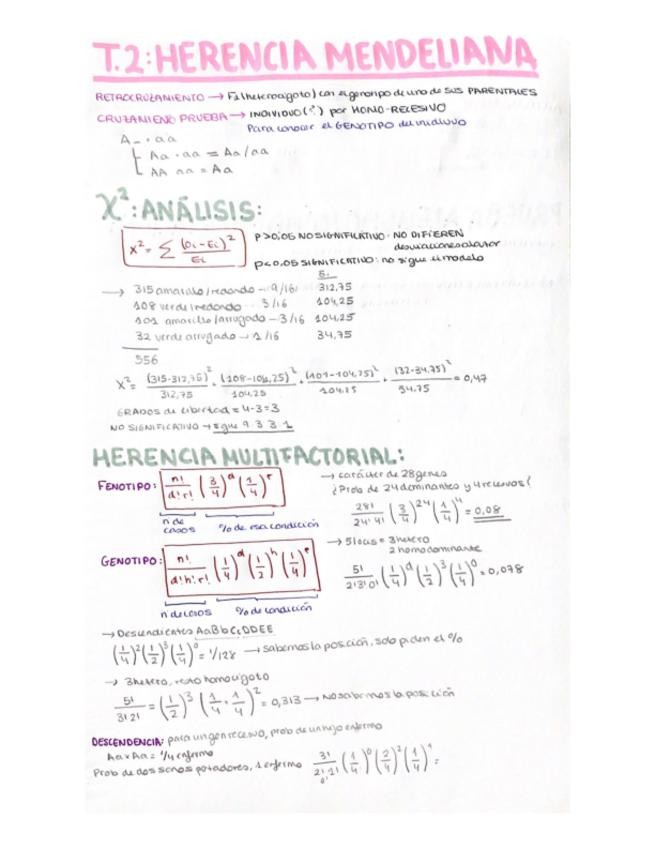 T.2: HERENCIA MENDELIANA
RETROCRUZAMIENTO → F1 (heterocigoto) con el genotipo de uno de sus PARENTALES
CRUZAMIENTO PRUEBA → INDIVIDUO (?) por HOMO-RECESIVO
Para conocer el GENOTIPO del individuo
A_ · aa
Aa · aa = Aa/aa
AA aa = Aa
X²: ANÁLISIS:
X² = Σ (Oi - Ei)² / Ei
P > 0,05 NO SIGNIFICATIVO · NO DIFIEREN
desviaciones al azar
p < 0,05 SIGNIFICATIVO: no sigue el modelo
Ei
→ 315 amarillo/redondo - 9/16 312,75
108 verde/redondo - 3/16 104,25
101 amarillo/arrugado - 3/16 104,25
32 verde arrugado - 1/16 34,75
556
X² = (315-312,75)²/312,75 + (108-104,25)²/104,25 + (101-104,25)²/104,25 + (32-34,75)²/34,75 = 0,47
GRADOS de libertad = 4-3=3
NO SIGNIFICATIVO → sigue 9 3 3 1
HERENCIA MULTIFACTORIAL:
FENOTIPO: n!/d!r! (3/4)^d (1/4)^r
nº de casos
% de esa condición
→ carácter de 28 genes
¿Prob de 24 dominantes y 4 recesivos?
28!/24!4! (3/4)^24 (1/4)^4 = 0,08
GENOTIPO: n!/d!h!r! (1/4)^d (1/2)^h (1/4)^r
nº de locis
% de condición
→ 5 locus = 3 hetero
2 homo dominante
5!/2!3!0! (1/4)^d (1/2)^3 (1/4)^0 = 0,078
→ Descendientes AaBbCcDDEE
(1/4)² (1/2)³ (1/4)⁰ = 1/128 → sabemos la posición, solo piden el %
→ 3 hetero, resto homocigoto
5!/3!2! = (1/2)³ (1/4 + 1/4)² = 0,313 → No sabemos la posición
DESCENDENCIA: para un gen recesivo, prob de un hijo enfermo
Aa x Aa = 1/4 enfermo
Prob de dos sanos portadores, 1 enfermo 3!/2!1! (1/4)⁰ (2/4)² (1/4)¹ =